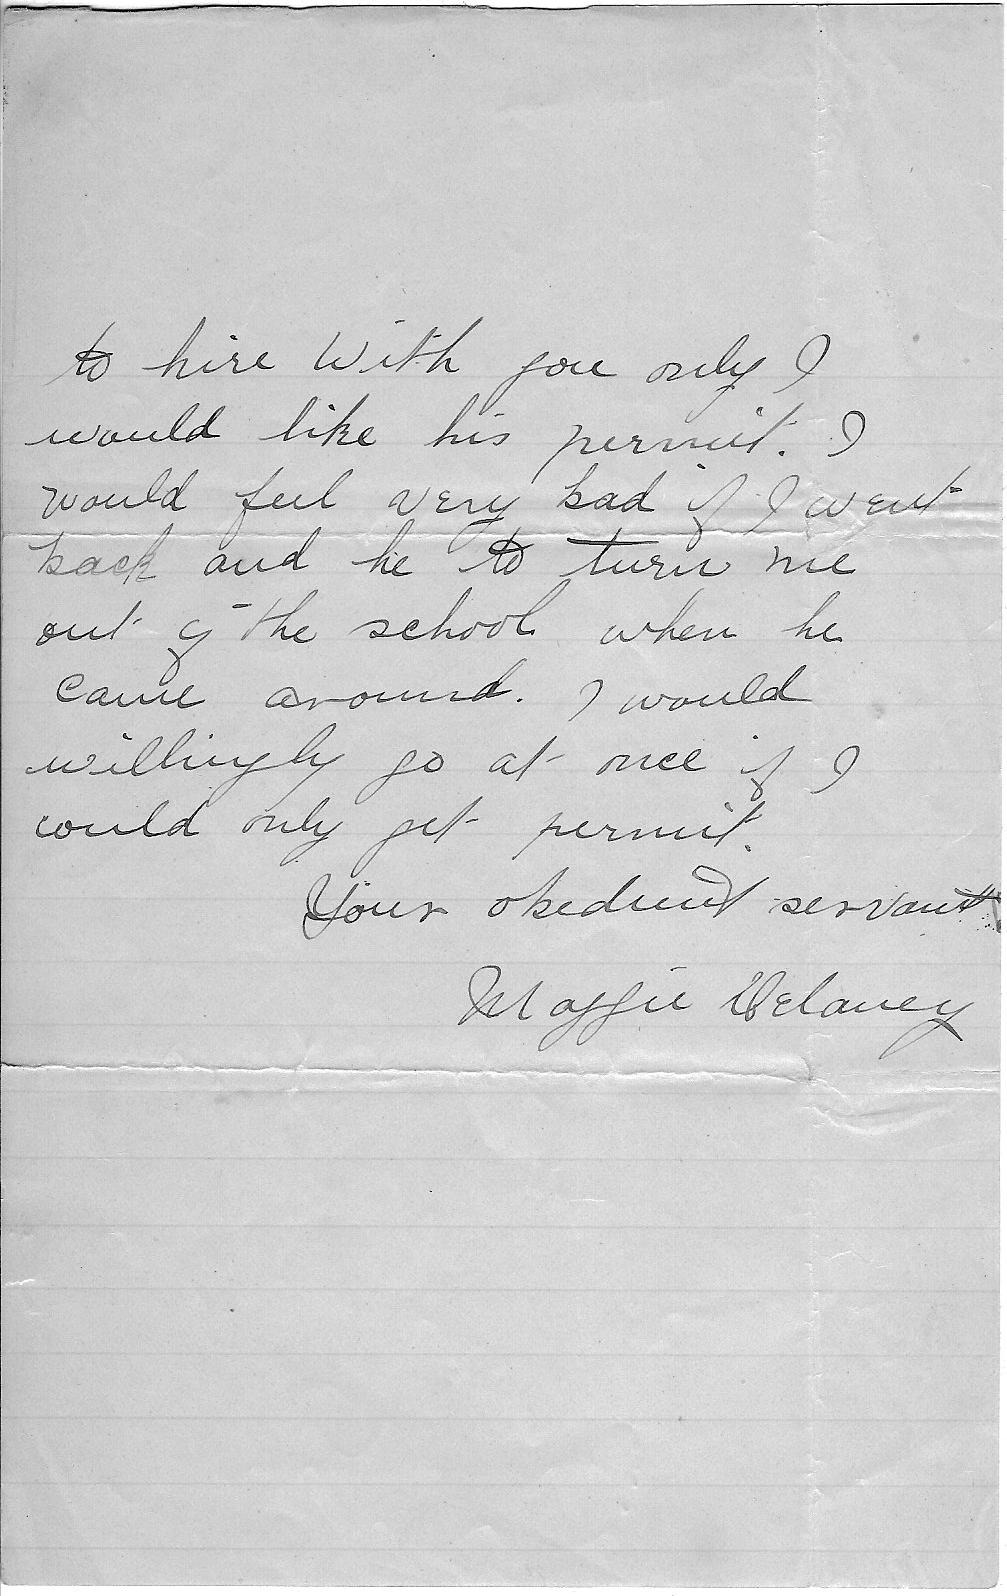 to hire with you only I
would like his permit. I
would feel very bad if I went
back and he to turn me
out of the school when he
came around. I would
willingly go at once if I
could only get permit.
Your obedient servant
Maggie Delaney